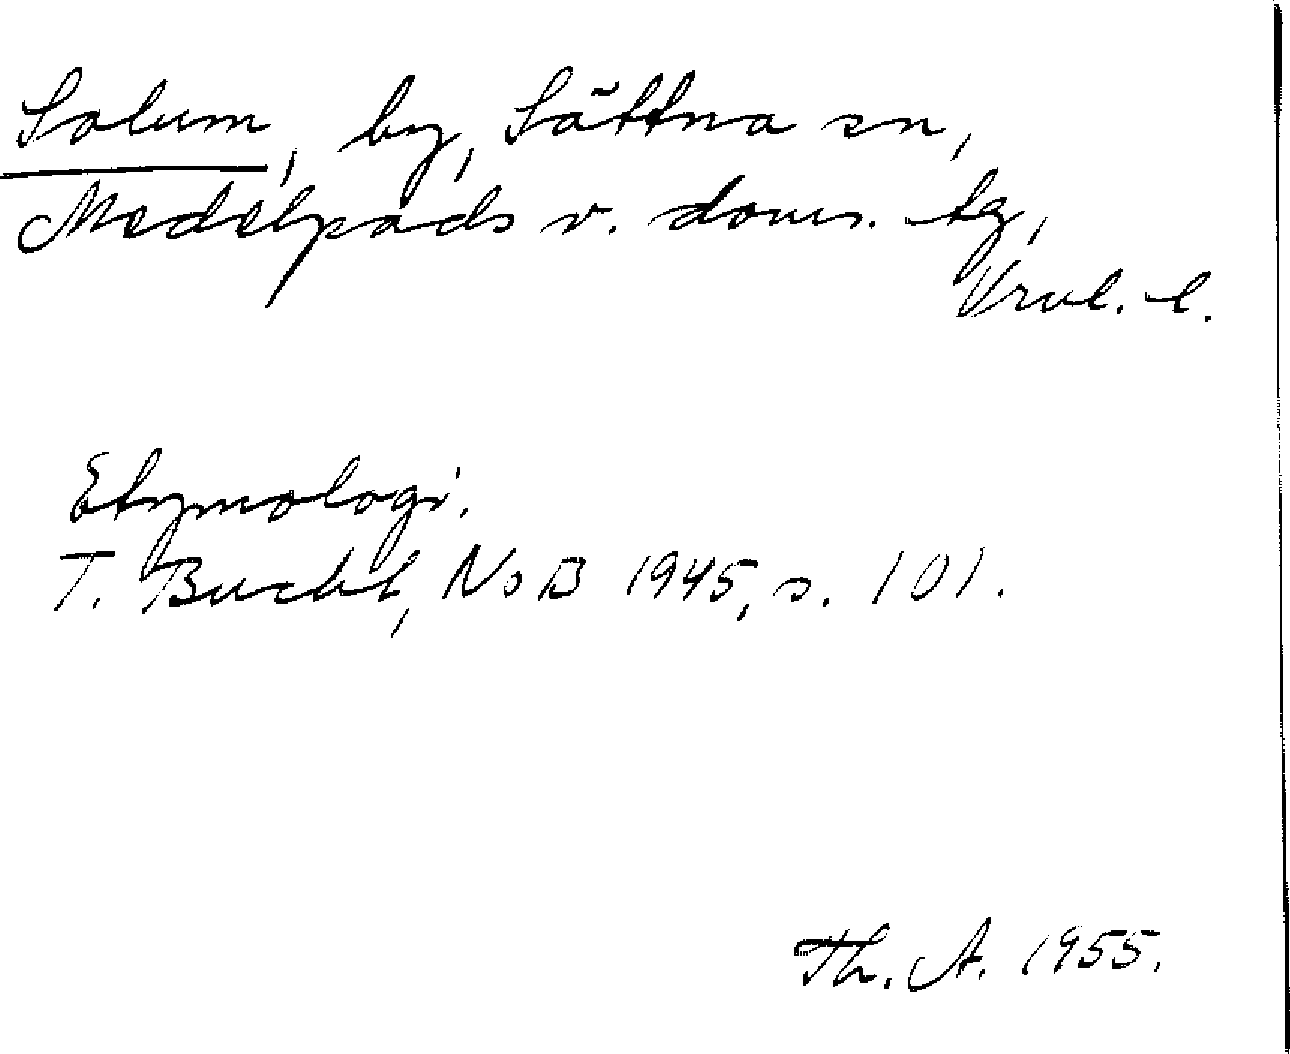 Solum, by, Sättna sn,
Medelpads v. doms. tg,
Vrnl. l.
Etymologi.
T. Bucht, NoB 1945, s. 101.
Th. A. 1955.